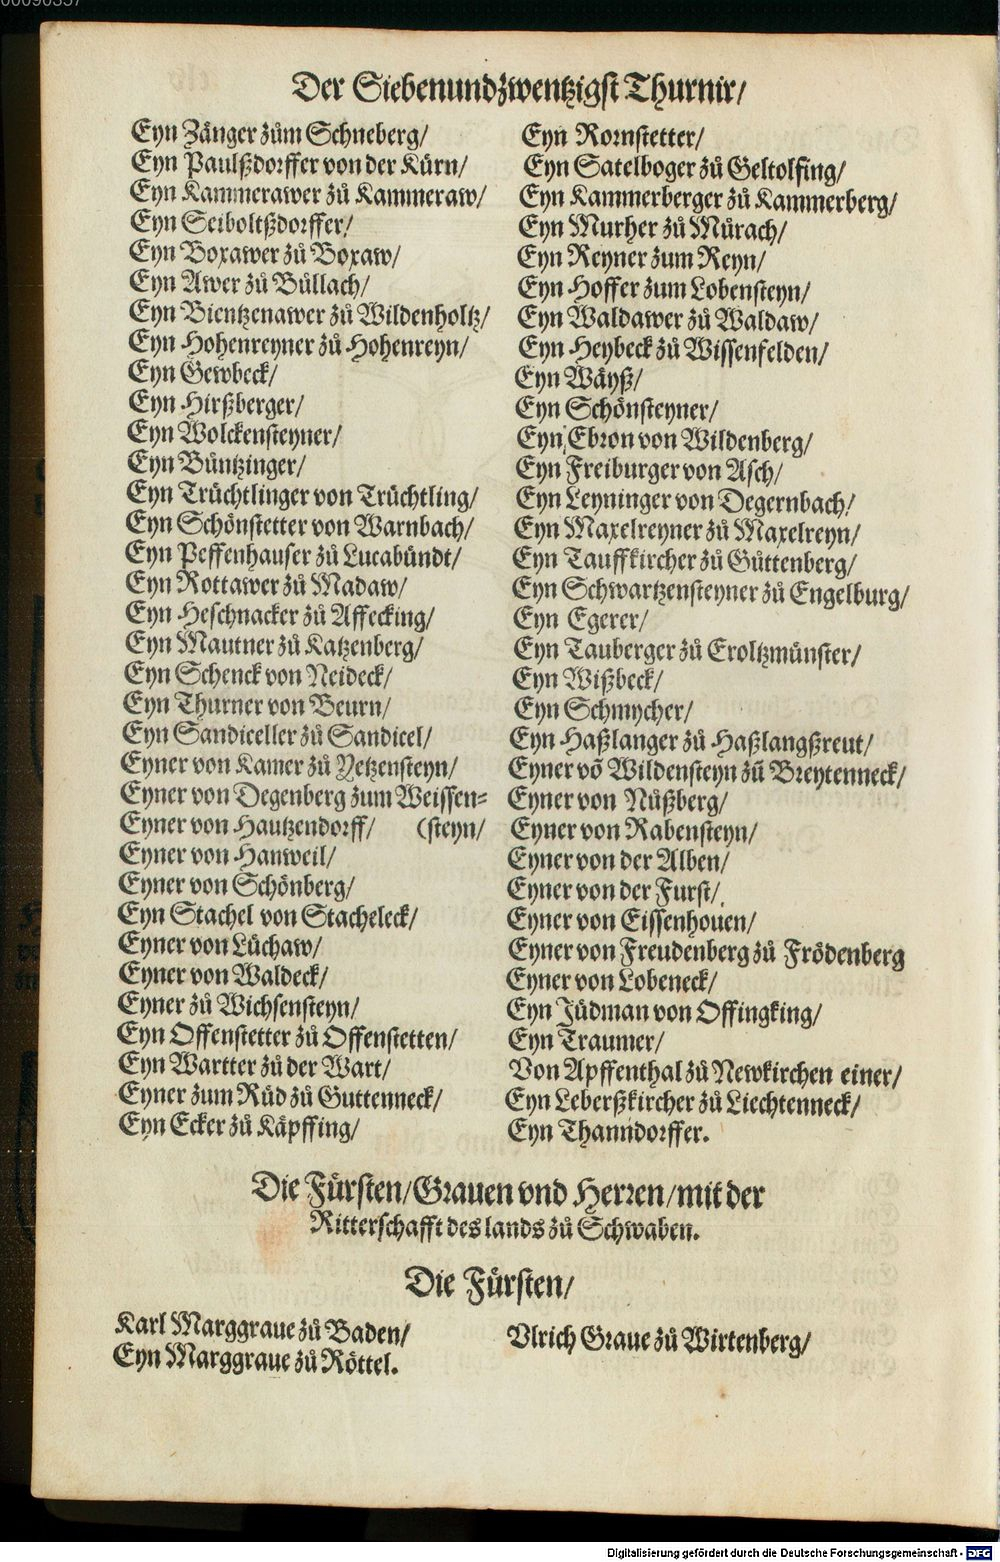 00090357
Der Siebenundzwentzigst Thurnir/
Eyn Zånger zům Schneberg/
Eyn Paulßdorffer von der Kürn/
Eyn Kammerawer zů Kammeraw/
Eyn Seiboltßdorffer/
Eyn Boxawer zů Boxaw/
Eyn Awer zů Büllach/
Eyn Bientzenawer zů Wildenholtz/
Eyn Hohenreyner zů Hohenreyn/
Eyn Gewbeck/
Eyn Hirßberger/
Eyn Wolckensteyner/
Eyn Büntzinger/
Eyn Trüchtlinger von Trüchtling/
Eyn Schönstetter von Warnbach/
Eyn Peffenhauser zů Lucabündt/
Eyn Rottawer zů Madaw/
Eyn Heschnacker zů Affecking/
Eyn Mautner zů Katzenberg/
Eyn Schenck von Neideck/
Eyn Thurner von Beurn/
Eyn Sandiceller zů Sandicel/
Eyner von Kamer zů Yetzensteyn/
Eyner von Degenberg zum Weissen=
Eyner von Hautzendorff/ (steyn/
Eyner von Hanweil/
Eyner von Schönberg/
Eyn Stachel von Stacheleck/
Eyner von Lüchaw/
Eyner von Waldeck/
Eyner zů Wichsensteyn/
Eyn Offenstetter zů Offenstetten/
Eyn Wartter zů der Wart/
Eyner zum Rüd zů Guttenneck/
Eyn Ecker zů Käpffing/
Eyn Rornstetter/
Eyn Satelboger zů Geltolfing/
Eyn Kammerberger zů Kammerberg/
Eyn Murher zů Mürach/
Eyn Reyner zum Reyn/
Eyn Hoffer zum Lobensteyn/
Eyn Waldawer zů Waldaw/
Eyn Heybeck zů Wissenfelden/
Eyn Wäyß/
Eyn Schönsteyner/
Eyn Ebron von Wildenberg/
Eyn Freiburger von Asch/
Eyn Leyninger von Degernbach/
Eyn Maxelreyner zů Maxelreyn/
Eyn Tauffkircher zů Güttenberg/
Eyn Schwartzensteyner zů Engelburg/
Eyn Egerer/
Eyn Tauberger zů Eroltzmünster/
Eyn Wißbeck/
Eyn Schmycher/
Eyn Haßlanger zů Haßlangßreut/
Eyner võ Wildensteyn zů Breytenneck/
Eyner von Nüßberg/
Eyner von Rabensteyn/
Eyner von der Alben/
Eyner von der Furst/
Eyner von Eissenhouen/
Eyner von Freudenberg zů Frödenberg
Eyner von Lobeneck/
Eyn Jüdman von Offingking/
Eyn Traumer/
Von Apffenthal zů Newkirchen einer/
Eyn Leberßkircher zů Liechtenneck/
Eyn Thanndorffer.
Die Fürsten/Grauen vnd Herren/mit der
Ritterschafft des lands zů Schwaben.
Die Fürsten/
Karl Marggraue zů Baden/
Eyn Marggraue zů Röttel.
Vlrich Graue zů Wirtenberg/
Digitalisierung gefördert durch die Deutsche Forschungsgemeinschaft - DFG